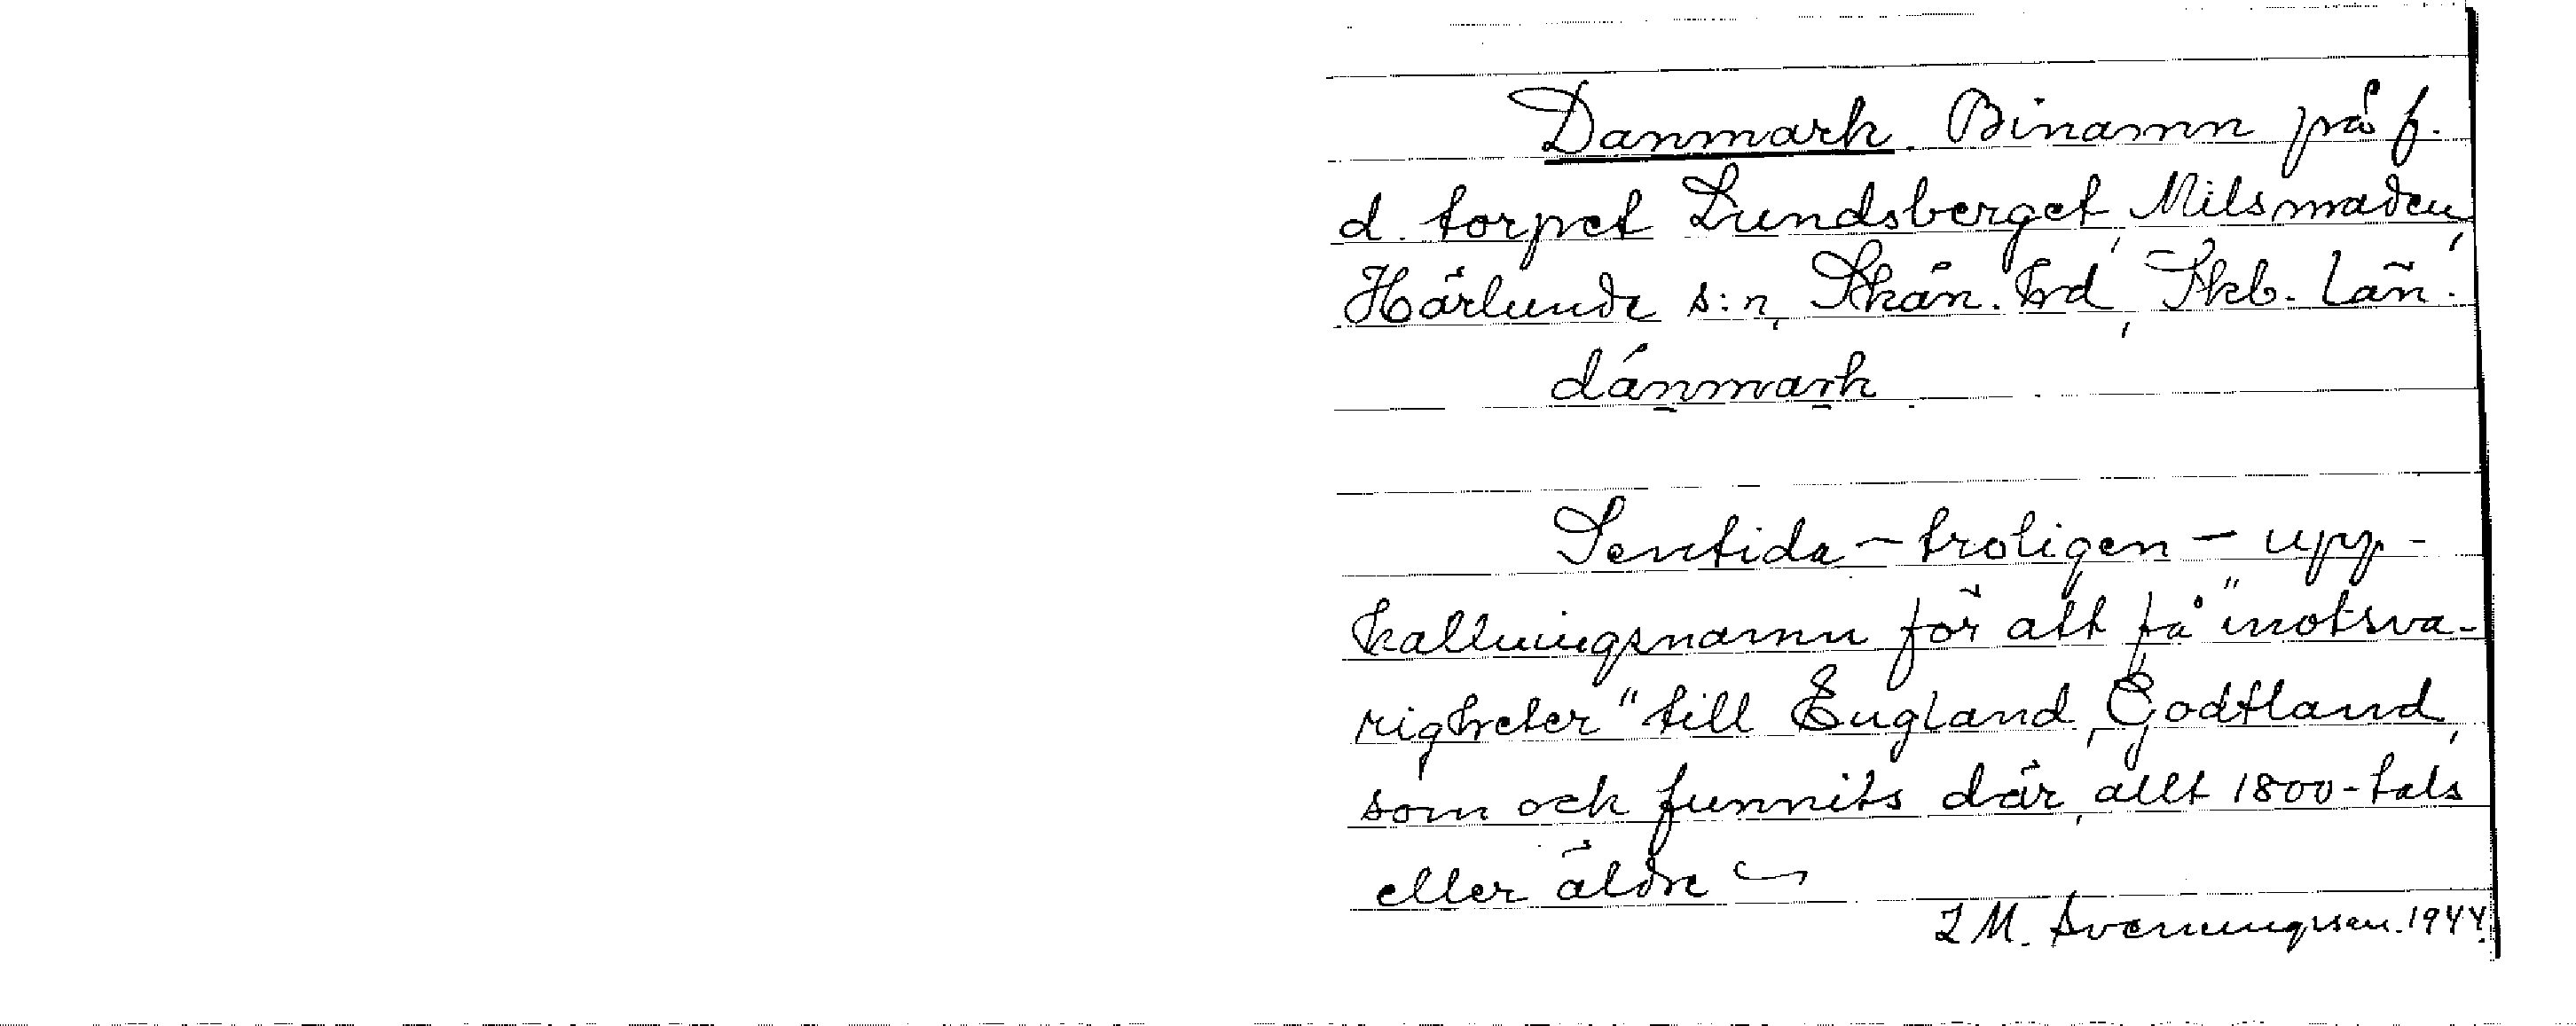 Danmark. Binamn på f.
d. torpet Lundsberget, Milsmaden,
Härlunda s:n, Skån. hd, Skb. län.
dánmark
Sentida – troligen – upp-
kallningsnamn för att få "motsva-
righeter" till England, Godtland,
som ock funnits där, allt 1800-tals
eller äldre
I M. Svenungsson. 1944.